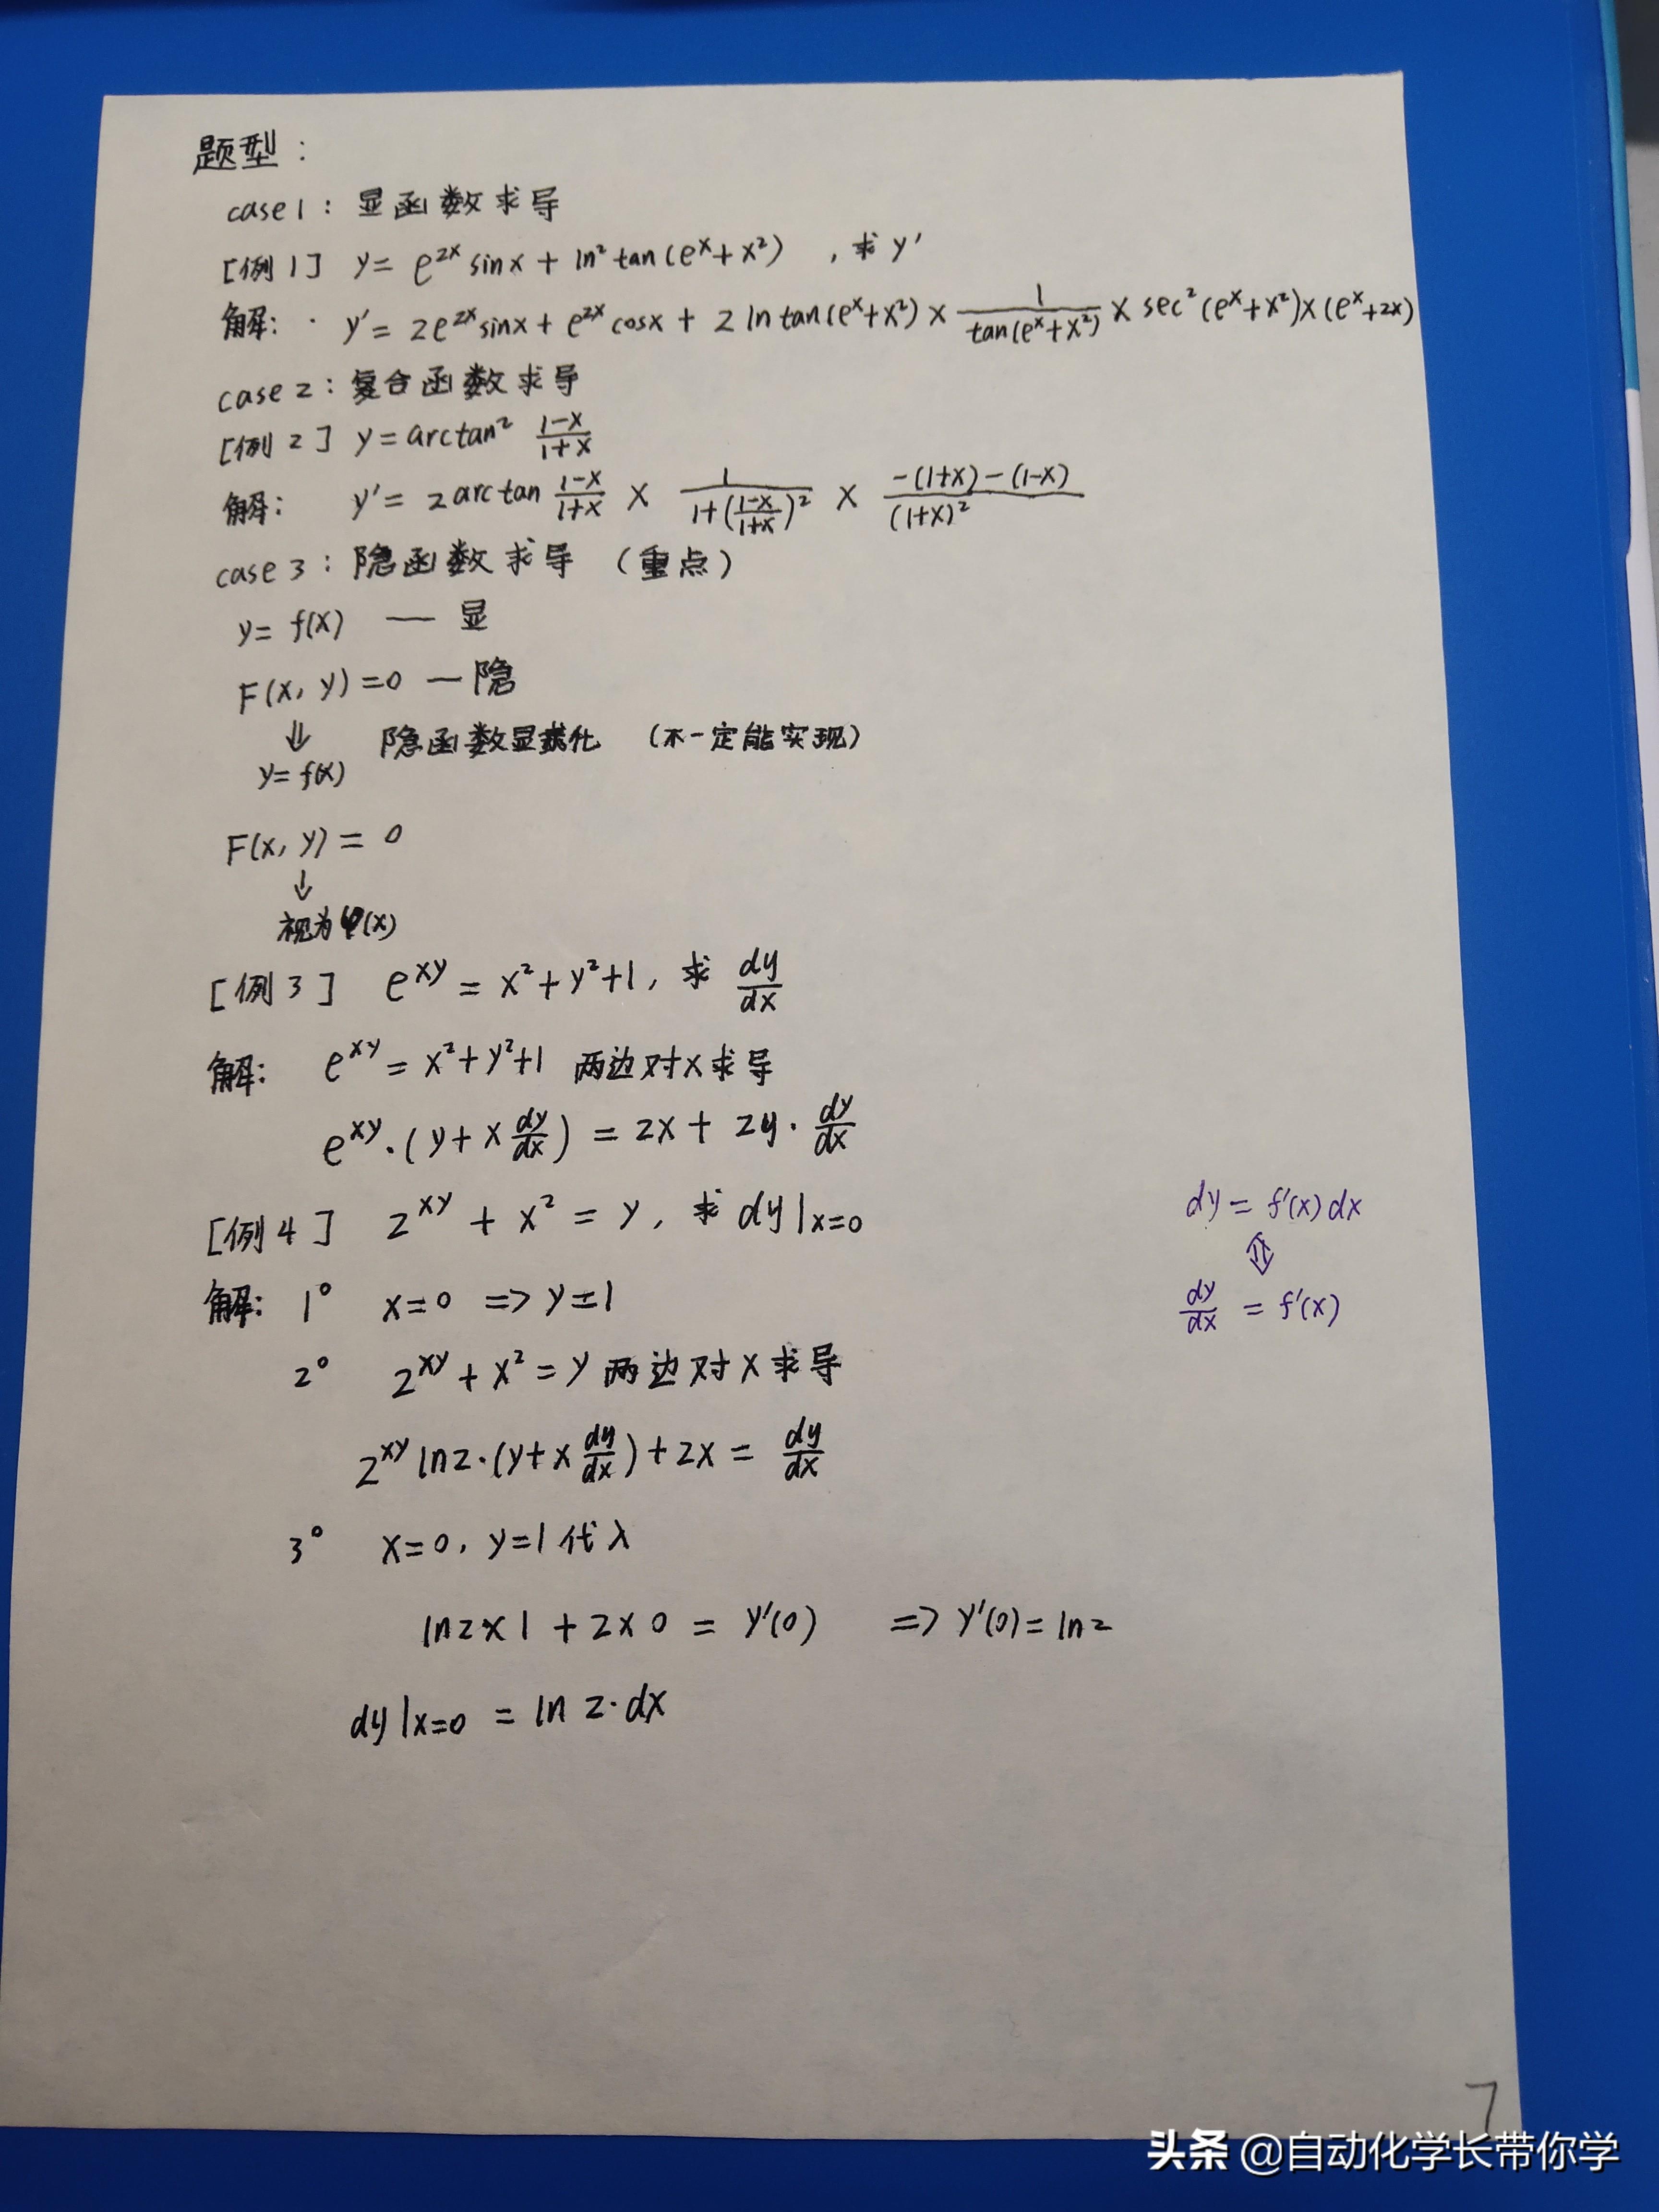 题型：
case1：显函数求导
[例1] y = e^{2x} sinx + ln² tan(e^x + x²)，求 y'
解： y' = 2e^{2x} sinx + e^{2x} cosx + 2 ln tan(e^x + x²) × \frac{1}{tan(e^x + x²)} × sec²(e^x + x²) × (e^x + 2x)
case2：复合函数求导
[例2] y = arctan² \frac{1-x}{1+x}
解： y' = 2 arctan \frac{1-x}{1+x} × \frac{1}{1+(\frac{1-x}{1+x})²} × \frac{-(1+x)-(1-x)}{(1+x)²}
case3：隐函数求导（重点）
y = f(x) — 显
F(x, y) = 0 — 隐
⇓ 隐函数显化（不一定能实现）
y = f(x)
F(x, y) = 0
↓
视为 φ(x)
[例3] e^{xy} = x² + y² + 1，求 \frac{dy}{dx}
解： e^{xy} = x² + y² + 1 两边对x求导
e^{xy}·(y + x\frac{dy}{dx}) = 2x + 2y·\frac{dy}{dx}
[例4] 2^{xy} + x² = y，求 dy|x=0
解：1° x=0 => y=1
2° 2^{xy} + x² = y 两边对x求导
2^{xy} ln2·(y + x\frac{dy}{dx}) + 2x = \frac{dy}{dx}
3° x=0，y=1代入
ln2×1 + 2×0 = y'(0) => y'(0) = ln2
dy|x=0 = ln2·dx
dy = f'(x)dx
⇕
\frac{dy}{dx} = f'(x)
7
头条 @自动化学长带你学